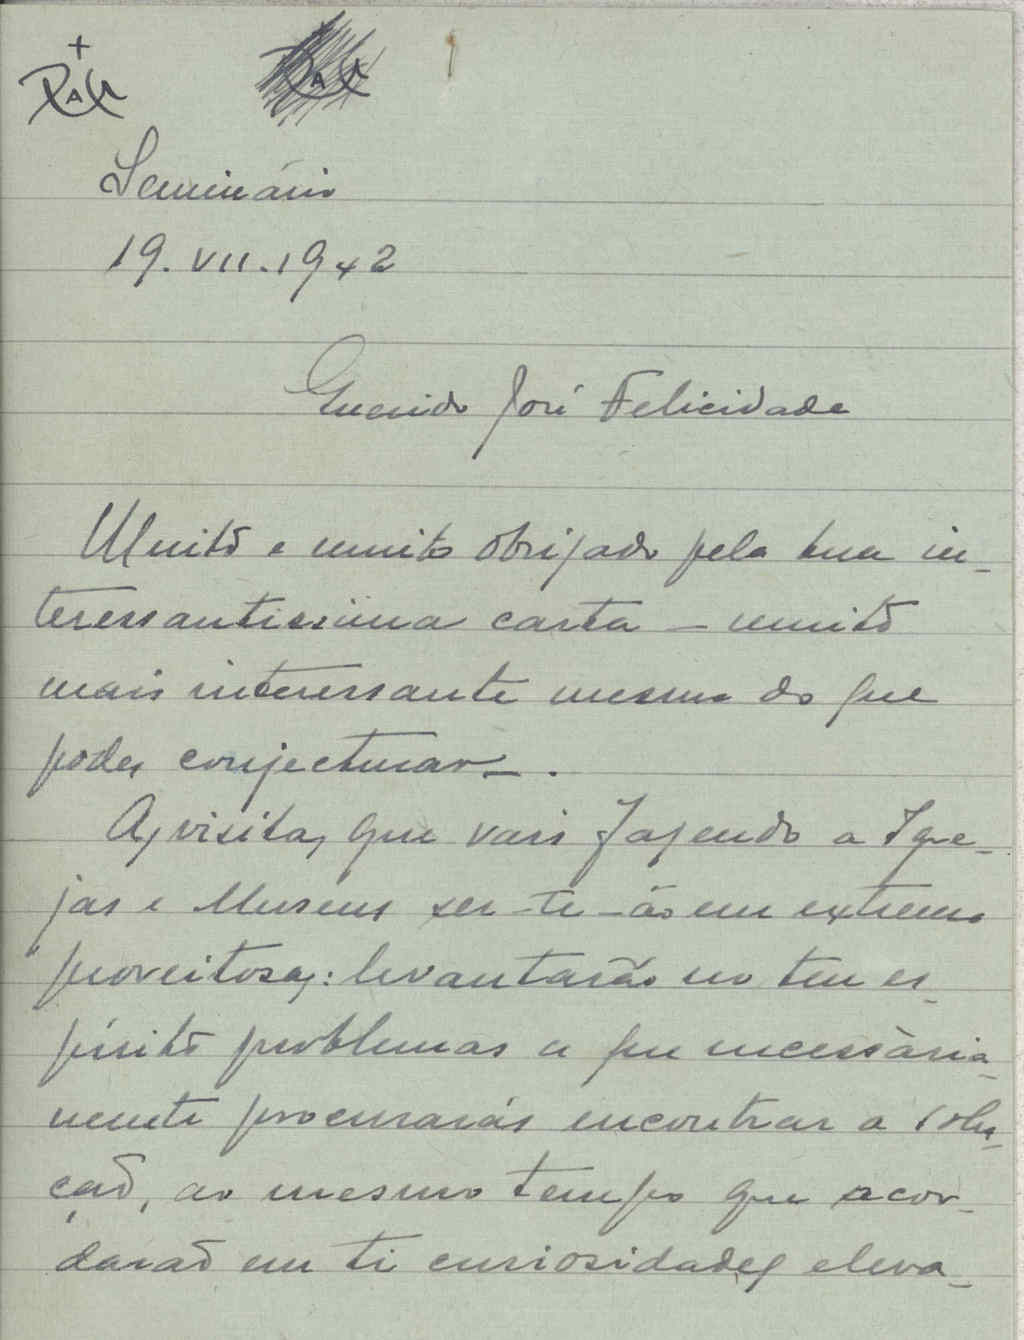 Seminário
19.VII.1942
Querido José Felicidade
Muito e muito obrigado pela tua in-
teressantissima carta – muito
mais interessante mesmo do que
podes conjecturar – .
As visitas que vais fazendo a Igre-
jas e Museus ser-te-ão em extremo
proveitosas: levantarão no teu es-
pírito problemas a que necessària-
mente procurarás encontrar a solu-
ção, ao mesmo tempo que acor-
darão em ti curiosidades eleva-